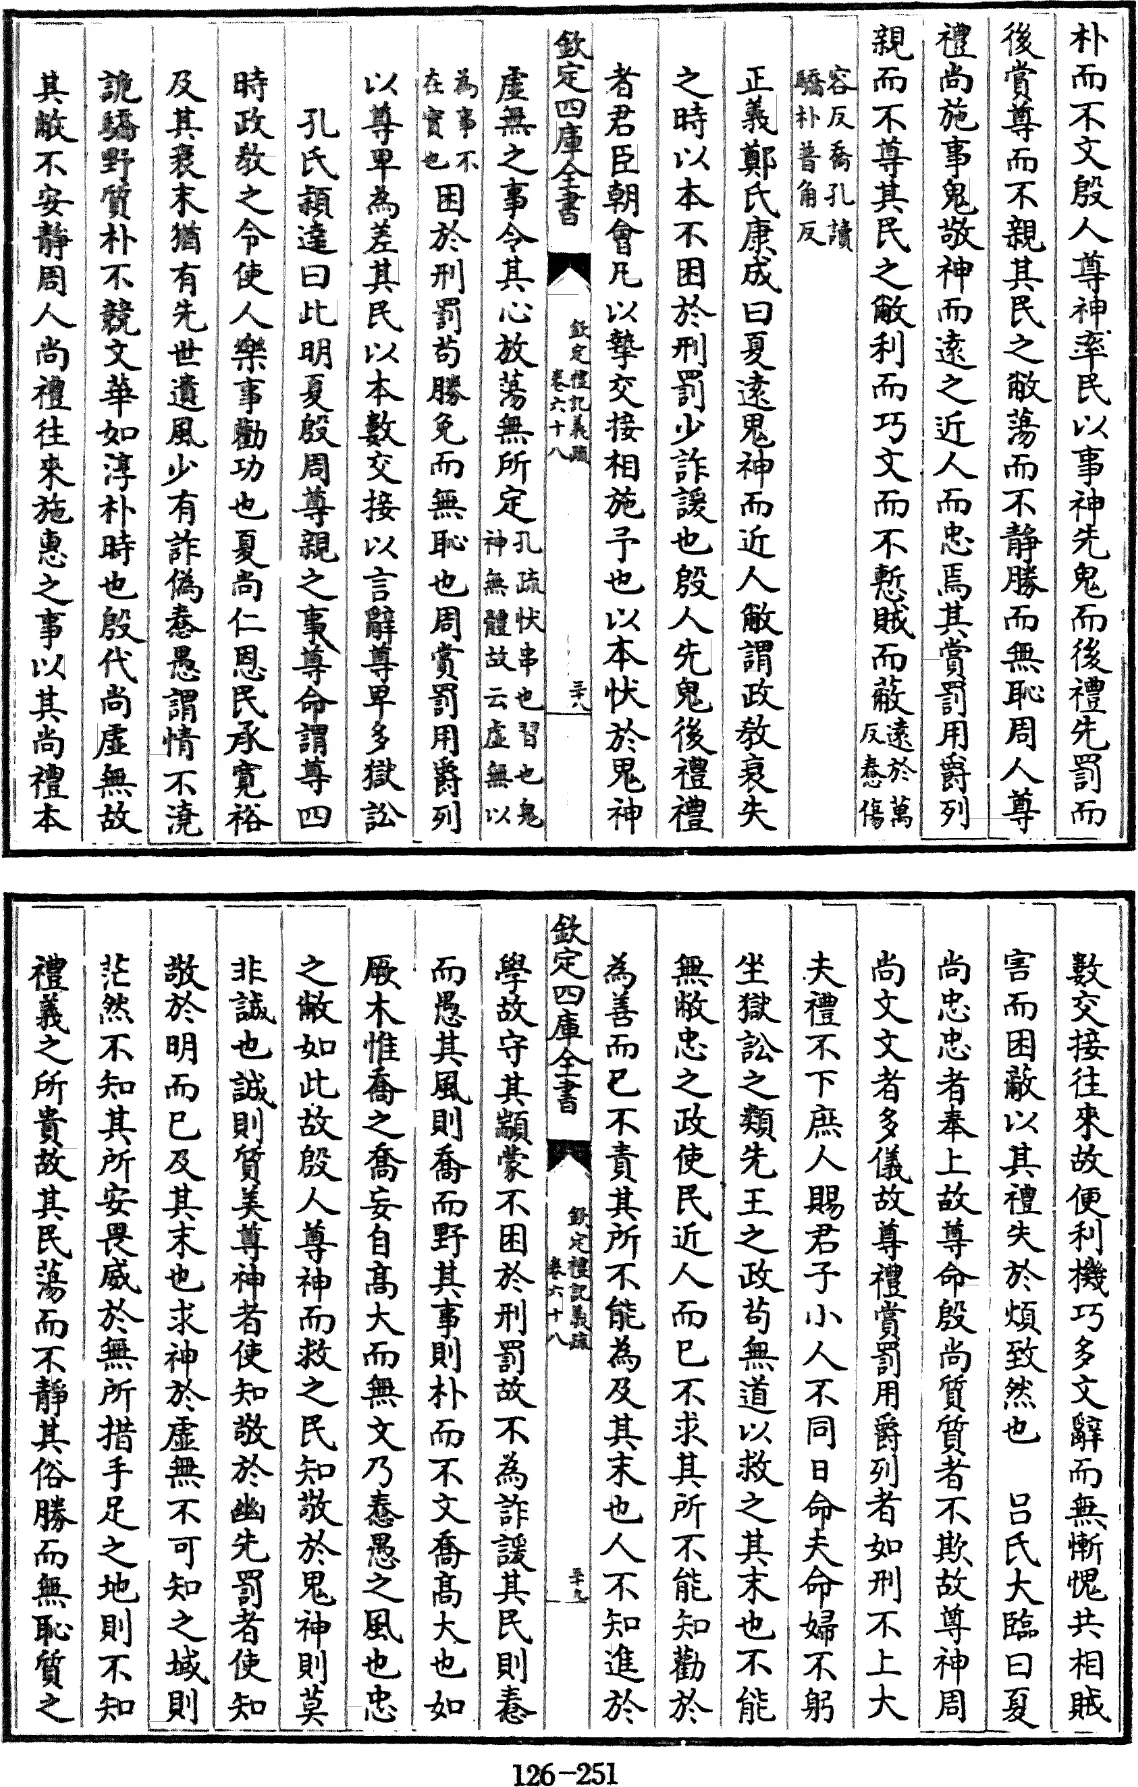 朴而不文殷人尊神率民以事神先鬼而後禮先罰而
後賞尊而不親其民之敝蕩而不靜勝而無恥周人尊
禮尚施事鬼敬神而遠之近人而忠焉其賞罰用爵列
親而不尊其民之敝利而巧文而不慙賊而蔽遠於萬
反惷傷
容反喬孔讀
驕朴普角反
正義鄭氏康成曰夏遠鬼神而近人敝謂政教衰失
之時以本不困於刑罰少詐諼也殷人先鬼後禮禮
者君臣朝會凡以摯交接相施予也以本忕於鬼神
欽定四庫全書
欽定禮記義疏
卷六十八
三十八
虛無之事令其心放蕩無所定孔疏忕串也習也鬼
神無體故云虛無以
為事不
在實也困於刑罰苟勝免而無恥也周賞罰用爵列
以尊卑為差其民以本數交接以言辭尊卑多獄訟
孔氏穎達曰此明夏殷周尊親之事尊命謂尊四
時政教之令使人樂事勸功也夏尚仁恩民承寬裕
及其衰末猶有先世遺風少有詐偽惷愚謂情不澆
詭驕野質朴不競文華如淳朴時也殷代尚虛無故
其敝不安靜周人尚禮往來施惠之事以其尚禮本
數交接往來故便利機巧多文辭而無慚愧共相賊
害而困蔽以其禮失於煩致然也 呂氏大臨曰夏
尚忠忠者奉上故尊命殷尚質質者不欺故尊神周
尚文文者多儀故尊禮賞罰用爵列者如刑不上大
夫禮不下庶人賜君子小人不同日命夫命婦不躬
坐獄訟之類先王之政苟無道以救之其末也不能
無敝忠之政使民近人而已不求其所不能知勸於
為善而已不責其所不能為及其末也人不知進於
欽定四庫全書
欽定禮記義疏
卷六十八
三十九
學故守其顓蒙不困於刑罰故不為詐諼其民則惷
而愚其風則喬而野其事則朴而不文喬高大也如
厥木惟喬之喬妄自高大而無文乃惷愚之風也忠
之敝如此故殷人尊神而救之民知敬於鬼神則莫
非誠也誠則質美尊神者使知敬於幽先罰者使知
敬於明而已及其末也求神於虛無不可知之域則
茫然不知其所安畏威於無所措手足之地則不知
禮義之所貴故其民蕩而不靜其俗勝而無恥質之
126-251